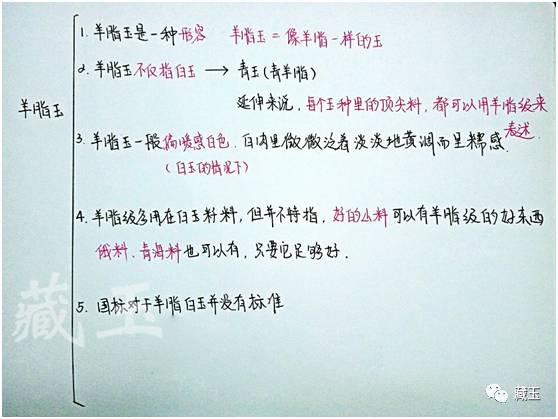 羊脂玉
1. 羊脂玉是一种形容 羊脂玉 = 像羊脂一样的玉
2. 羊脂玉不仅指白玉 → 青玉(青羊脂)
延伸来说, 每个玉种里的顶尖料, 都可以用羊脂级来
表述.
3. 羊脂玉一般偏暖感白色. 白内里微微泛着淡淡地黄润而呈糯感.
(白玉的情况下)
4. 羊脂级多用在白玉籽料, 但并不特指, 好的山料可以有羊脂级的好东西
俄料. 青海料也可以有, 只要它足够好.
5. 国标对于羊脂白玉并没有标准
藏玉
藏玉